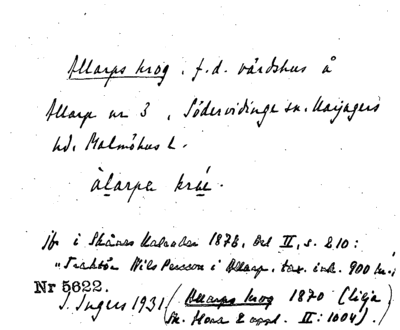 Allarps krog, f.d. värdshus å
Allarp nr 3, Södervidinge sn. Harjagers
hd. Malmöhus l.
àlarpa kråé.
jfr i Skånes Kalender 1878, Del II, s. 210:
"Traktör Nils Persson i Allarp, tax. ink. 900 kr."
Nr 5622.
I. Ingers 1931 (Allarps krog 1870 (Lilja
Sk. Flora 2 uppl. II: 1004).